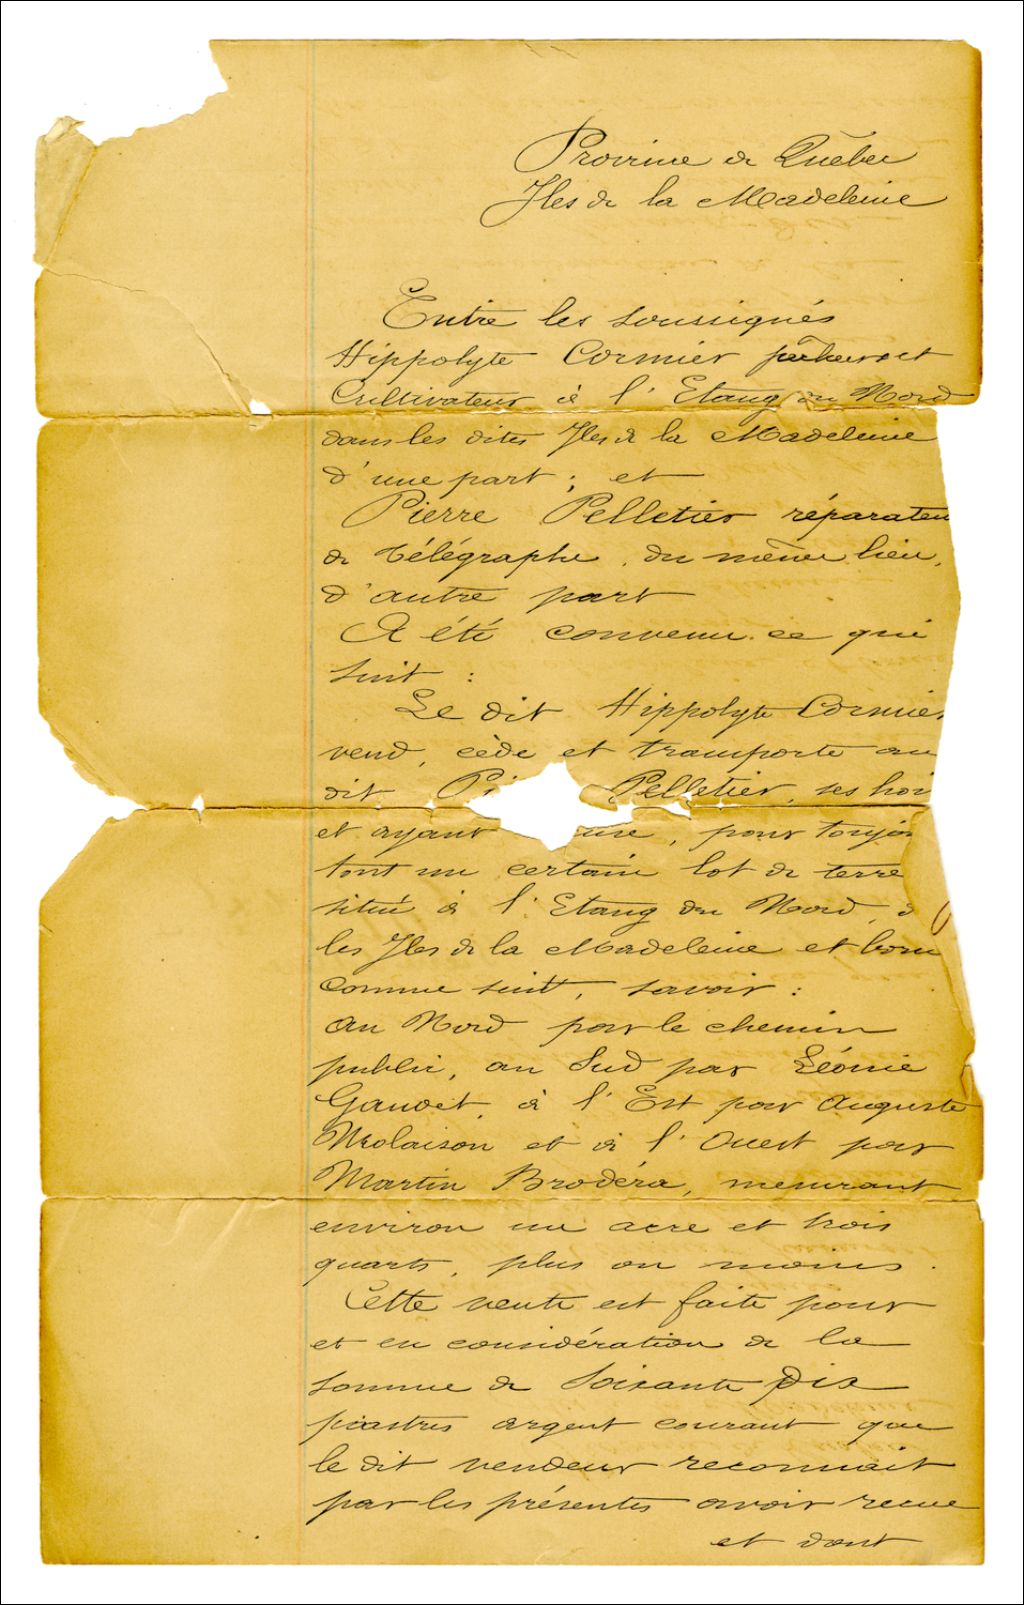 Province de Québec
Iles de la Madeleine
Entre les soussignés
Hippolyte Cormier pêcheur et
Cultivateur à l'Etang du Nord
dans les dites Iles de la Madeleine
d'une part; et
Pierre Pelletier réparateu
de télégraphe, du même lieu,
d'autre part
A été convenu ce qui
suit:
Le dit Hippolyte Cormier
vend, cède et transporte au
dit Pi Pelletier, ses hoi
et ayant use, pour toujou
tout un certain lot de terre
situé à l'Etang du Nord, d
les Iles de la Madeleine et born
comme suit, savoir:
au Nord par le chemin
public, au Sud par Léonie
Gaudet, à l'Est par Auguste
Molaison et à l'Ouest par
Martin Brodéra, mesurant
environ un acre et trois
quarts, plus ou moins.
Cette vente est faite pour
et en considération de la
somme de Soixante Dix
piastres argent courant que
le dit vendeur reconnait
par les présentes avoir recue
et dont